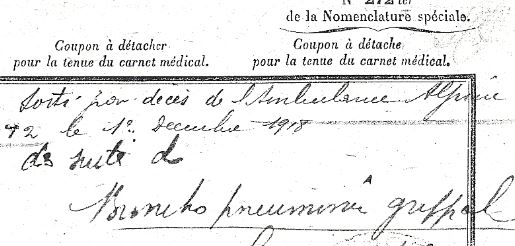 N° 272 ter
de la Nomenclature spéciale.
Coupon à détacher
pour la tenue du carnet médical.
Coupon à détache
pour la tenue du carnet médical.
Sorti par décès de l'Ambulance Alpine
2 le 1er Decembre 1918
de suite d
Broncho pneumonie grippal